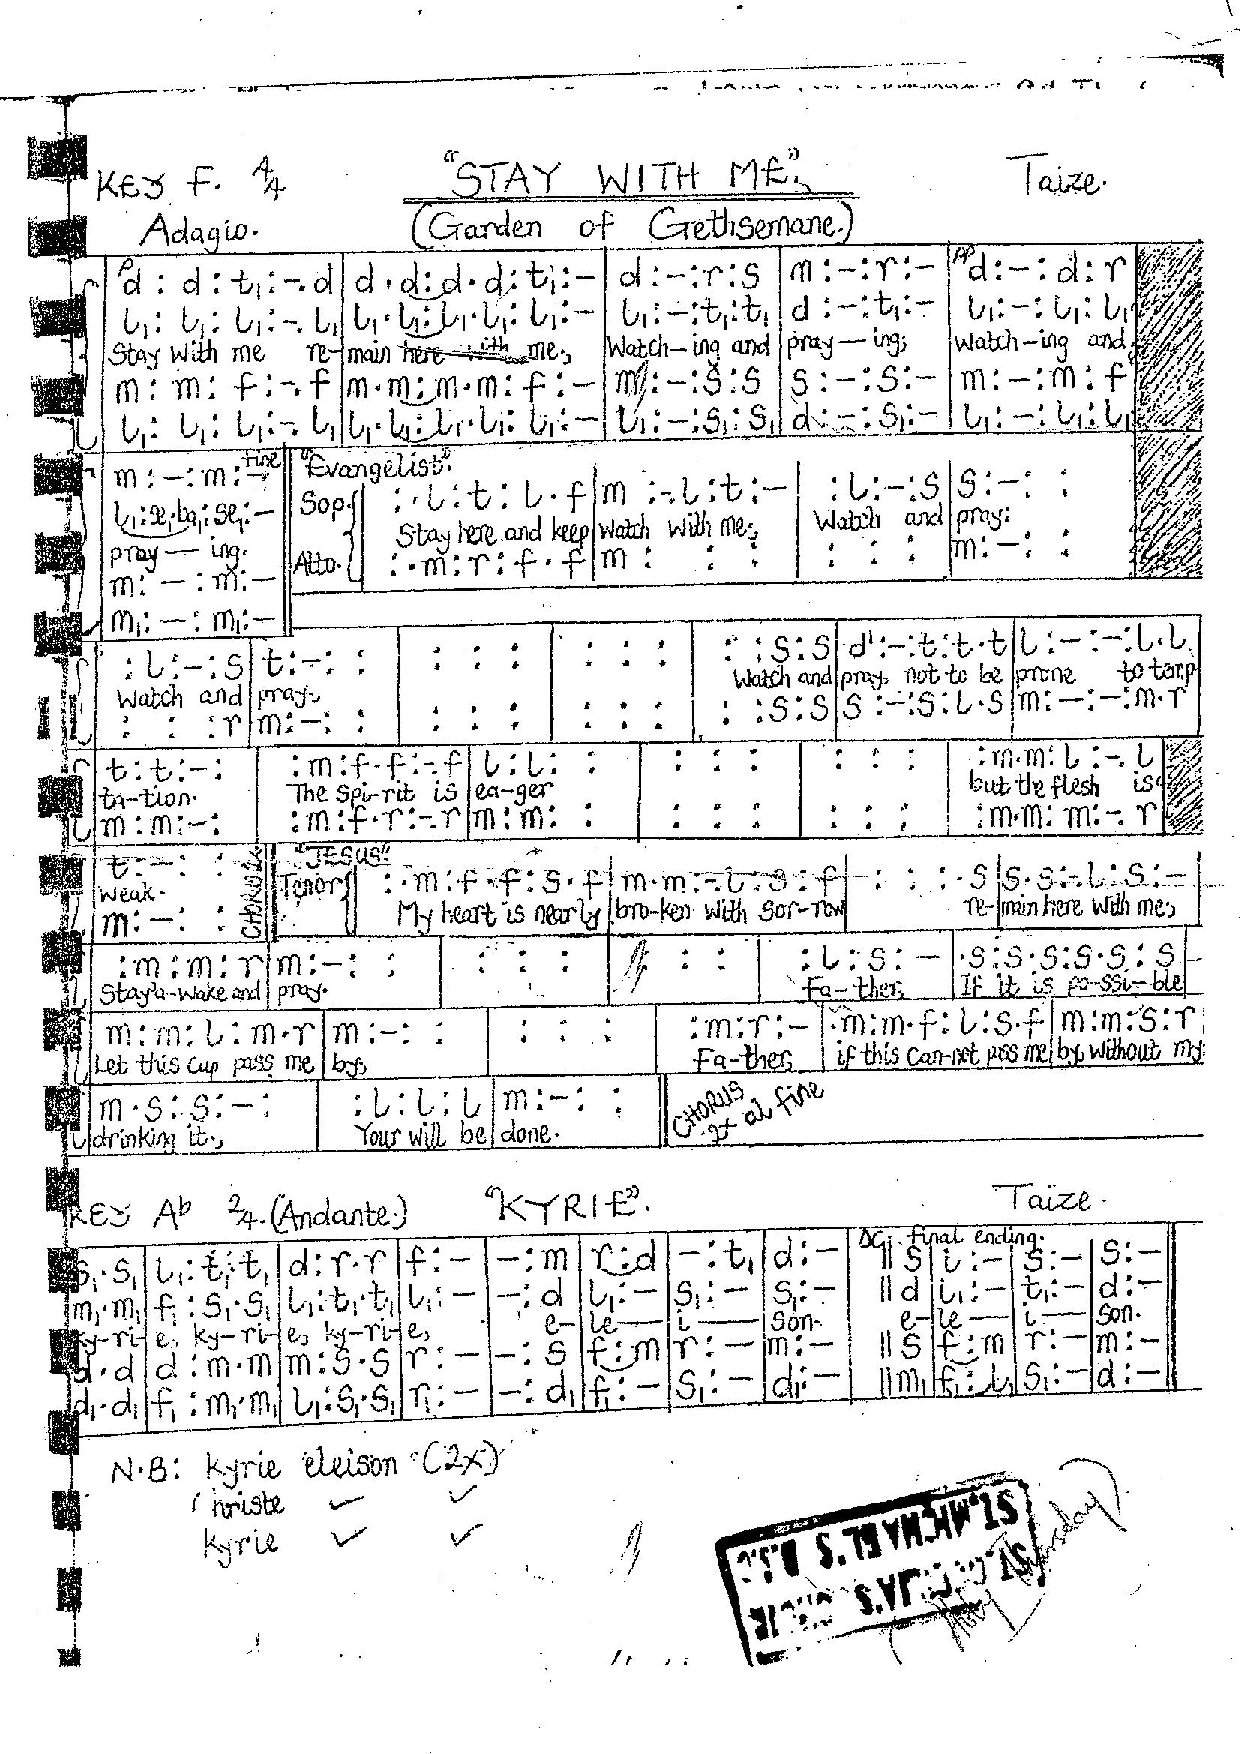 KEY F. 4/4 "STAY WITH ME". Taize.
Adagio. (Garden of Gethsemane.)
p d : d : t₁ :-. d | d . d : d . d : t₁ :- | d :- : r : s | m :- : r :- | pp d :- : d : r
l₁ : l₁ : l₁ :-. l₁ | l₁ . l₁ : l₁ . l₁ : l₁ :- | l₁ :- : t₁ : t₁ | d :- : t₁ :- | l₁ :- : l₁ : l₁
Stay with me re- main here with me; Watch-ing and pray-ing; Watch-ing and
m : m : f :-. f | m . m : m . m : f :- | m :- : s : s | s :- : s :- | m :- : m : f
l₁ : l₁ : l₁ :-. l₁ | l₁ . l₁ : l₁ . l₁ : l₁ :- | l₁ :- : s₁ : s₁ | d :- : s₁ :- | l₁ :- : l₁ : l₁
m :- : m :- Fine "Evangelist".
l₁ : se₁ . ba₁ : se₁ :- Sop. : . l : t : l . f | m :-. l : t :- | : l :- : s | s :- : :
Stay here and keep watch with me; Watch and pray:
pray-ing.
m :- : m :- Alto. : . m : r : f . f | m : : : | : : : | m :- : :
m₁ :- : m₁ :-
: l :- : s | t :- : : | : : : | : : : | : : s : s | d' :- : t : t . t | l :- :- : l . l
Watch and pray. Watch and pray, not to be prone to temp
: : : r | m :- : : | : : : | : : : | : : s : s | s :- : s : l . s | m :- :- : m . r
t : t :- : | : m : f . f :-. f | l : l : : | : : : | : : : | : m . m : l :-. l
ta-tion. The spi-rit is ea-ger but the flesh is
m : m :- : | : m : f . r :-. r | m : m : : | : : : | : : : | : m . m : m :-. r
t :- : : CHORUS 2x "JESUS"
Tenor : . m : f . f : s . f | m . m :-. l : s : f | : : : . s | s . s :-. l : s :-
weak. My heart is nearly bro-ken with sor-row re- main here with me;
m :- : :
: m : m : r | m :- : : | : : : | : : | : l : s :- | . s : s . s : s . s : s
Stay a-wake and pray. Fa-ther, If it is po-ssi-ble
m : m : l : m . r | m :- : : | : : : | : m : r :- | . m : m . f : l : s . f | m : m : s : r
Let this cup pass me by; Fa-ther, if this can-not pass me by, without my
m . s : s :- : | : l : l : l | m :- : : | CHORUS 2x al fine
drinking it., Your will be done.
KEY Ab 2/4. (Andante.) "KYRIE". Taize.
s₁ . s₁ | l₁ : t₁ . t₁ | d : r . r | f :- | - : m | r : d | - : t₁ | d :- | DC. final ending. || s | l :- | s :- | s :-
m₁ . m₁ | f₁ : s₁ . s₁ | l₁ : t₁ . t₁ | l₁ :- | - : d | l₁ :- | s₁ :- | s₁ :- || d | l₁ :- | t₁ :- | d :-
ky-ri-e, ky-ri-e, ky-ri-e, e-le-i-son. e-le-i-son.
d . d | d : m . m | m : s . s | r :- | - : s | f : m | r :- | m :- || s | f : m | r :- | m :-
d₁ . d₁ | f₁ : m₁ . m₁ | l₁ : s₁ . s₁ | r₁ :- | - : d₁ | f₁ :- | s₁ :- | d₁ :- || m₁ | f₁ : l₁ | s₁ :- | d :-
N.B: Kyrie eleison (2x)
Christe ✓ ✓
Kyrie ✓ ✓
ST. MICHAEL'S